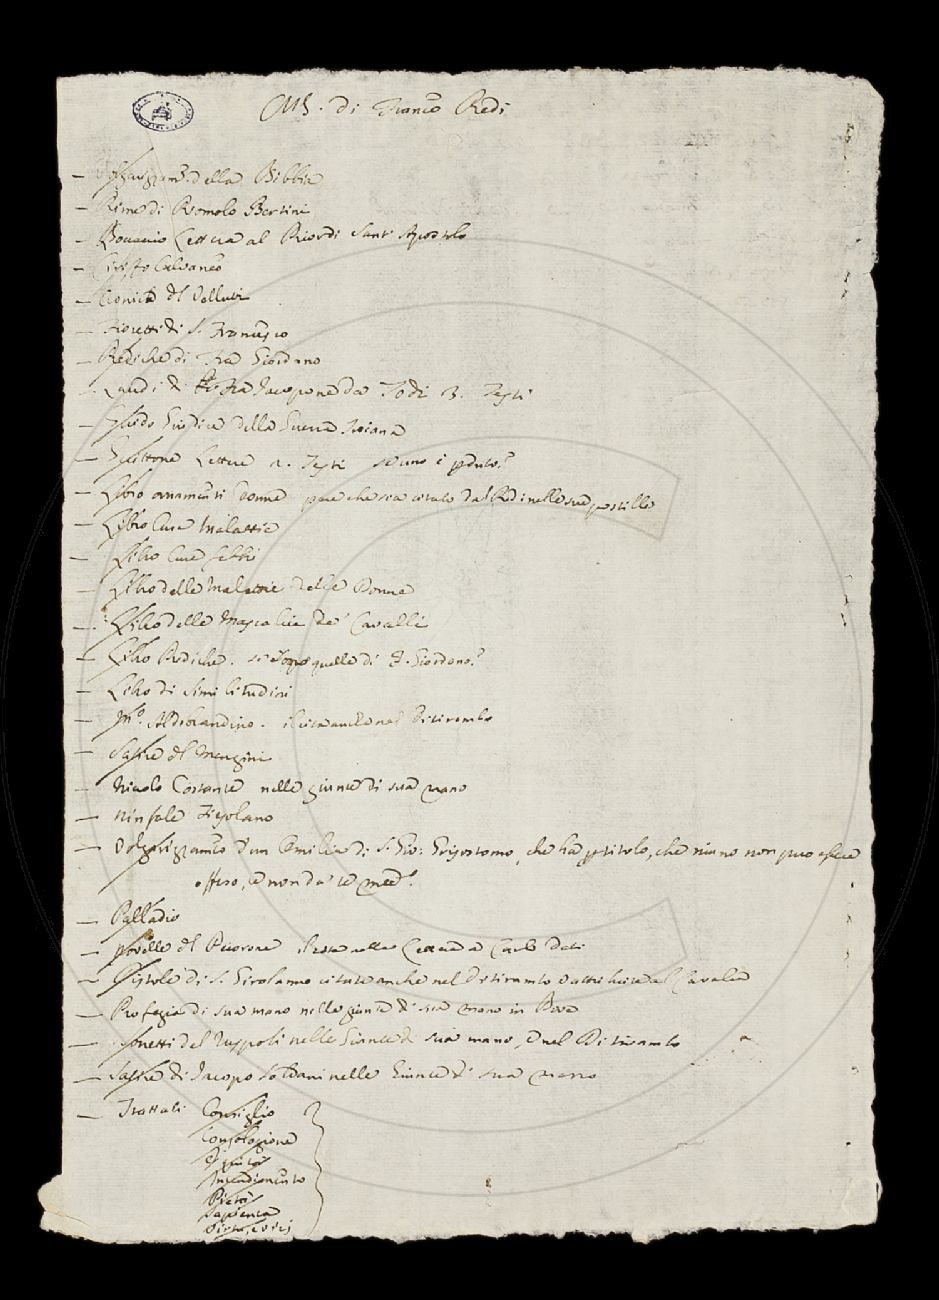 MS. di Franco Redi
— Volgarizzam. della Bibbia
— Rime di Romolo Bertini
— Boccaccio Lettera al Prior di Santi Apostolo
— Ciriffo Calvaneo
— Cronica del Velluti
— Fioretti di S. Francesco
— Prediche di Fra Giordano
— Laudi di Fra Jacopone da Todi 3. Testi
— Guido Giudice della Guerra Troiana
— Guittone Lettere 2. Testi se uno è pduto?
— Libro ornamenti Donne pare che sia citato dal Redi nelle sue postille
— Libro Cura Malattie
— Libro Cure febbri
— Libro delle Malattie delle Donne
— Libro delle Mascalcie de' Cavalli
— Libro Prediche. se sono quelle di F. Giordano?
— Libro di Similitudini
— Mo. Aldobrandino. il cita anche nel Ditirambo
— Satire del Menzini
— Nicolo Costante nelle giunte di sua mano
— Ninfale Fiesolano
— Volgarizzamto d'un Omilia di S. Gio: Grisostomo, che ha p titolo, che niuno non puo essere
offeso, se non da se med.o
— Palladio
— Novelle del Pecorone il resto nelle Lettere a Carlo Dati
— Pistole di S. Girolamo citate anche nel Ditirambo
— Profezia di sua mano nelle giunte di sua mano in
— Sonetti del Ruspoli nelle Giunte di sua mano, e nel Ditirambo
— Satire di Jacopo Soldani nelle Giunte di sua mano
— Trattati Consiglio
Consolazione
Intendimento
Pietà
Sapienza